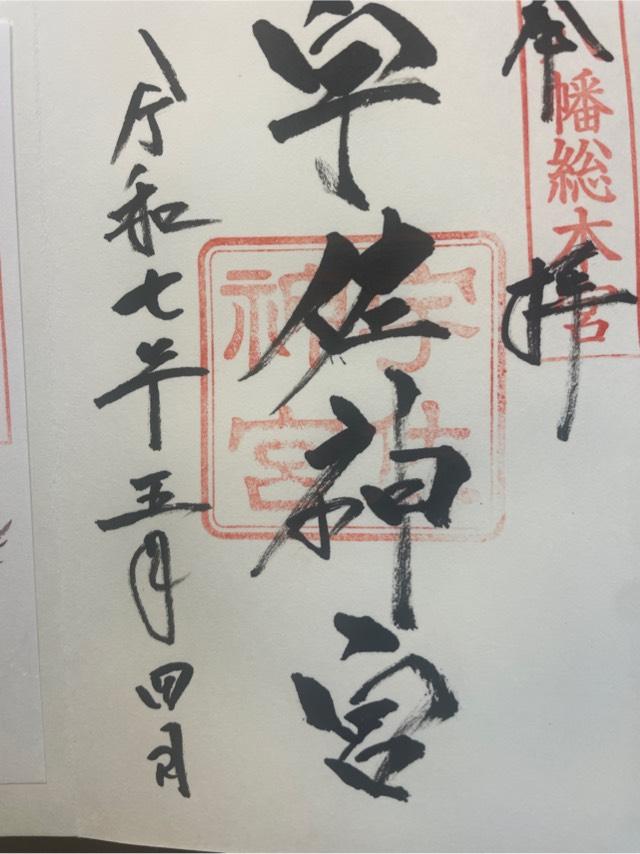 奉拝
八幡総本宮
宇佐神宮
宇佐
神宮
令和七年五月四日